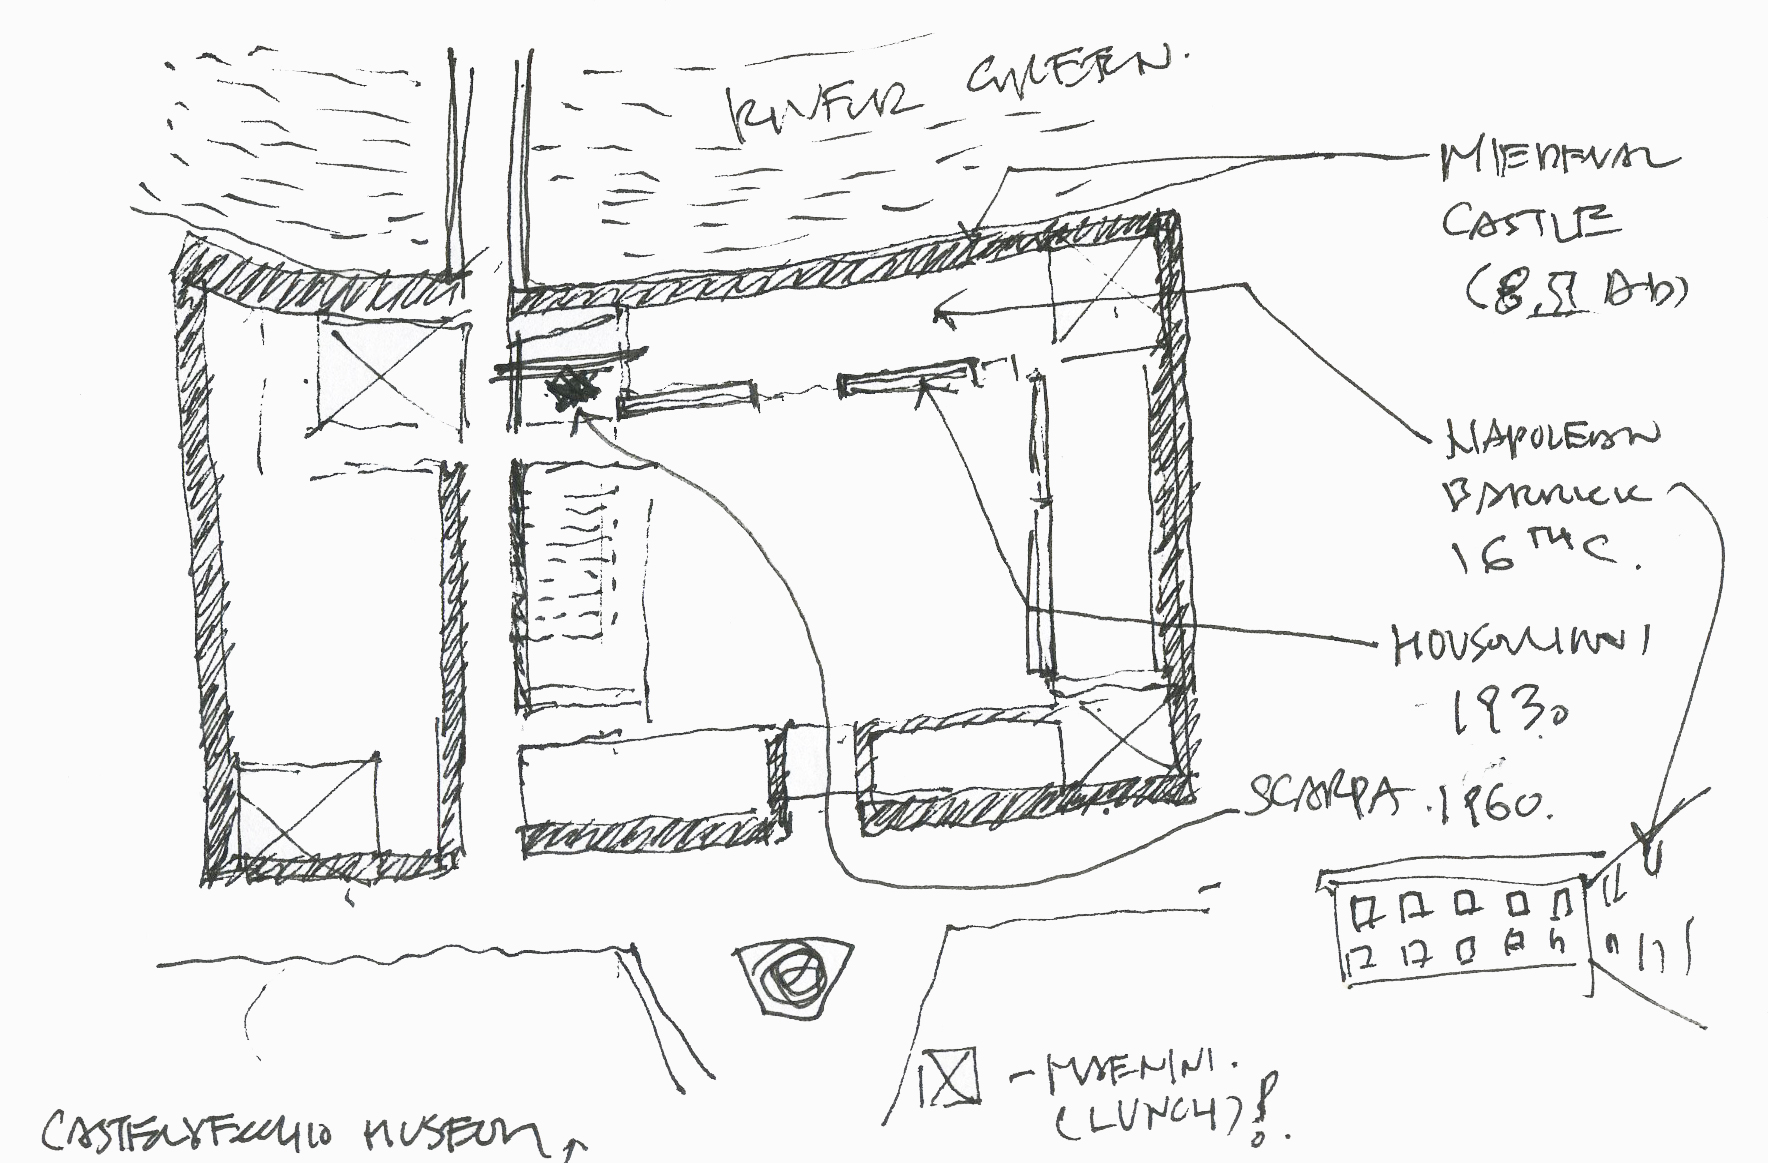 RIVER GREEN.
MEDEVAL
CASTLE
NAPOLEON
BARRICK
16TH C.
MOUSOLINNI
1930
SCARPA .1960.
(LUNCH)!
CASTELVECCHIO MUSEUM